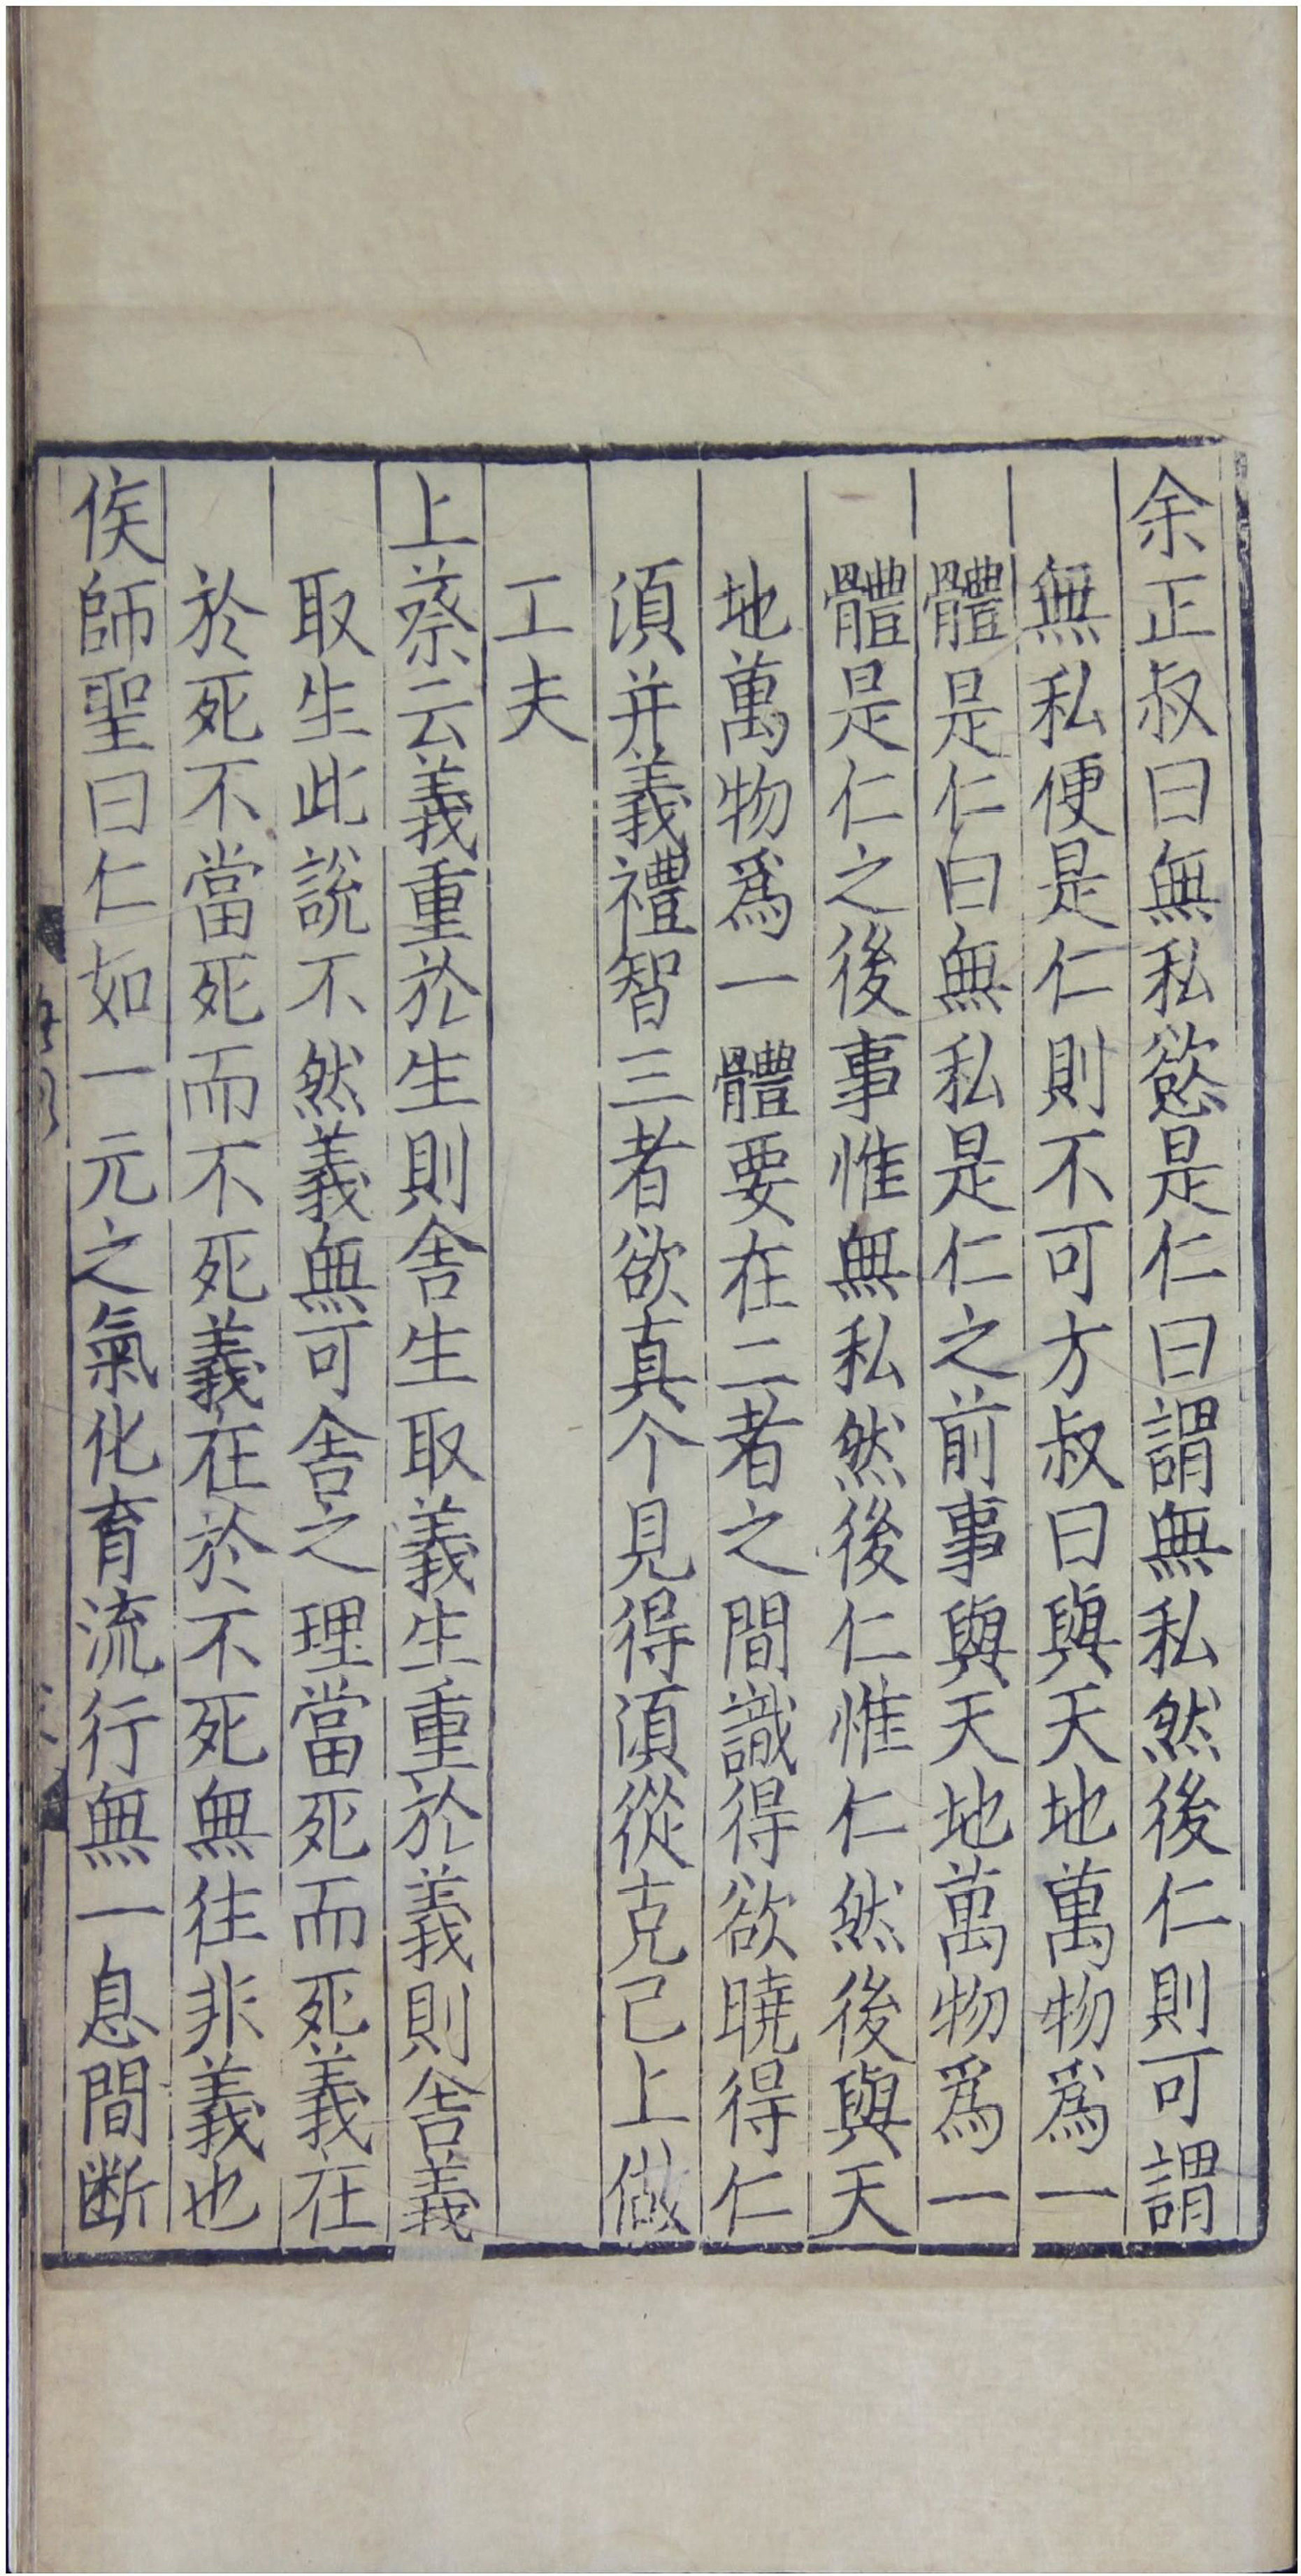 余正叔曰無私慾是仁曰謂無私然後仁則可謂
無私便是仁則不可方叔曰與天地萬物爲一
體是仁曰無私是仁之前事與天地萬物爲一
體是仁之後事惟無私然後仁惟仁然後與天
地萬物爲一體要在二者之間識得欲曉得仁
湏并義禮智三者欲真个見得湏從克已上做
工夫
上蔡云義重於生則舍生取義生重於義則舍義
取生此說不然義無可舍之理當死而死義在
於死不當死而不死義在於不死無往非義也
侯師聖曰仁如一元之氣化育流行無一息間断